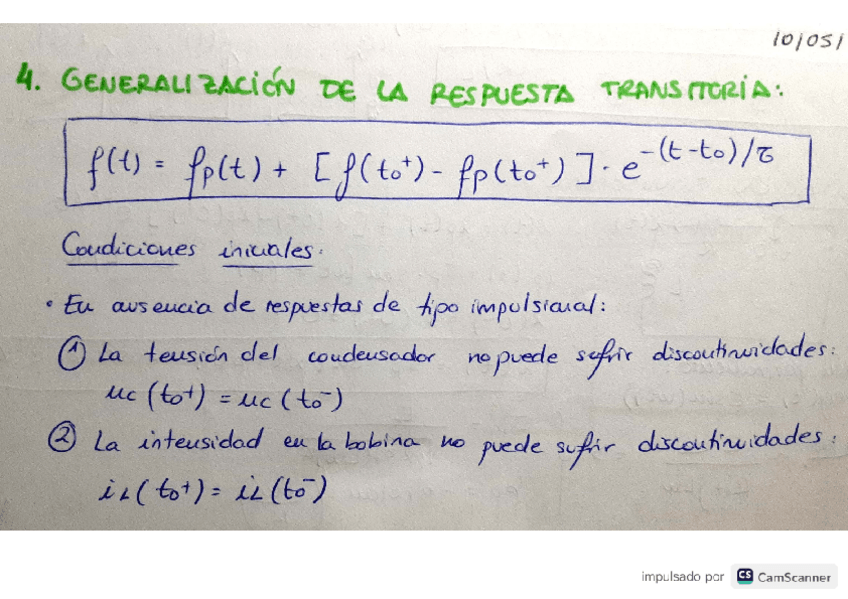 10/05/
4. GENERALIZACIÓN DE LA RESPUESTA TRANSITORIA:
f(t) = fp(t) + [f(to⁺) - fp(to⁺)] · e^-(t-to)/τ
Condiciones iniciales.
• En ausencia de respuestas de tipo impulsional:
① La tensión del condensador no puede sufrir discontinuidades:
uc (to⁺) = uc (to⁻)
② La intensidad en la bobina no puede sufrir discontinuidades:
iL (to⁺) = iL (to⁻)
impulsado por CS CamScanner